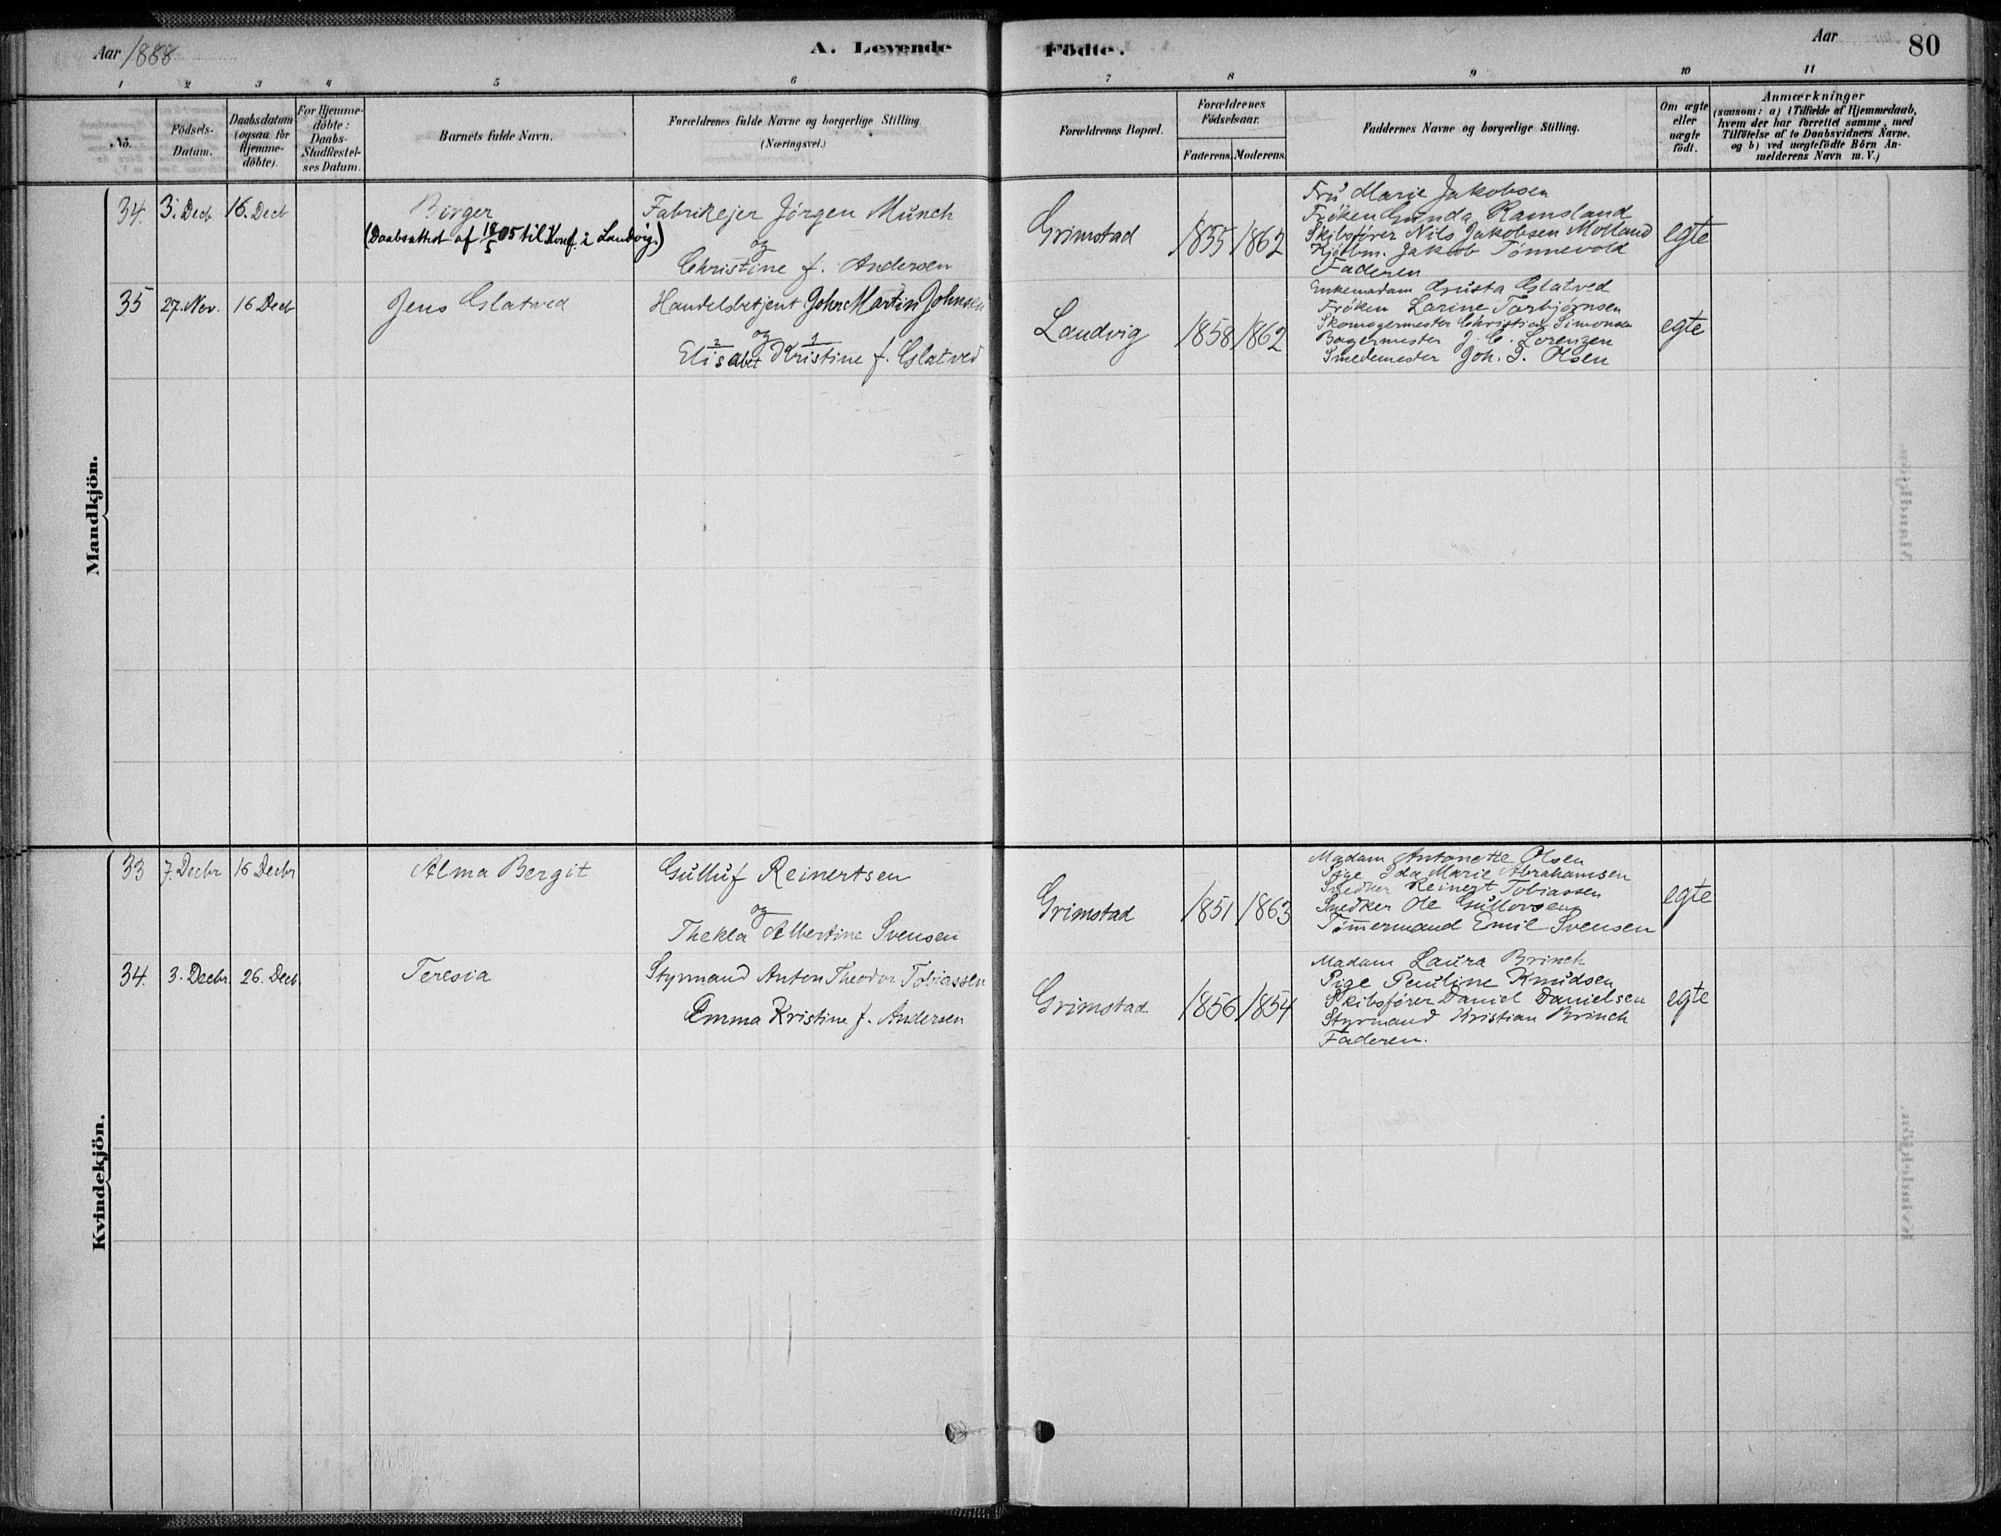 Aar 1888
A. Levende Födte.
Aar
80
1 2 3 4 5 6 7 8 9 10 11
No.
Födsels-
Datum.
Daabsdatum
(ogsaa for
Hjemme-
döbte).
For Hjemme-
döbte:
Daabs-
Stadfæstel-
ses Datum.
Barnets fulde Navn.
Forældrenes fulde Navne og borgerlige Stilling
(Næringsvei.)
Forældrenes Bopæl.
Forældrenes
Födselsaar.
Faderens. Moderens.
Faddernes Navne og borgerlige Stilling.
Om ægte
eller
uægte
födt.
Anmærkninger
(saasom: a) i Tilfælde af Hjemmedaab,
hvem der har forrettet samme, med
Tilföielse af to Daabsvidners Navne.
og b) ved uægtefödte Börn An-
melderens Navn m. V.)
Mandkjön.
34. 3. Decb 16. Decb
Birger
(Daabsattest af 18/5 05 til Konf. i Landvig.)
Fabrikejer Jörgen Münch
og
Christine f. Andersen
Grimstad 1855 1862
Fru Marie Jakobsen
Frøken Gunda Ramsland
Skibsfører Nils Jakobsen Molland
Kjøbm. Jakob Tönnevold
Faderen
egte
35 27. Nov. 16 Decb
Jens Glatved
Handelsbetjent John Martin Johnsen
og
2 1
Elisabet Kristine f. Glatved
Landvig 1858 1862
Enkemadam Gusta Glatved
Frøken Larine Torbjørnsen
Skomagermester Christian Simonsen
Bagermester J. C. Lorenzen
Smedemester Joh. T. Olsen
egte
Kvindekjön.
33 7. Decbr 16 Decbr
Alma Bergit
Gulluf Reinertsen
og
Thekla Albertine Svensen
Grimstad 1851 1863
Madam Antonette Olsen
Pige Ida Marie Abrahamsen
Snedker Reinert Tobiassen
Snedker Ole Gullovsen
Tömmermand Emil Svensen
egte
34. 3. Decbr. 26. Decb
Teresia
Styrmand Anton Theodor Tobiassen
Emma Kristine f. Andersen
Grimstad 1856 1854
Madam Laura Brinch
Pige Pauline Knudsen
Skibsfører Daniel Danielsen
Styrmand Kristian Brinch
Faderen.
egte